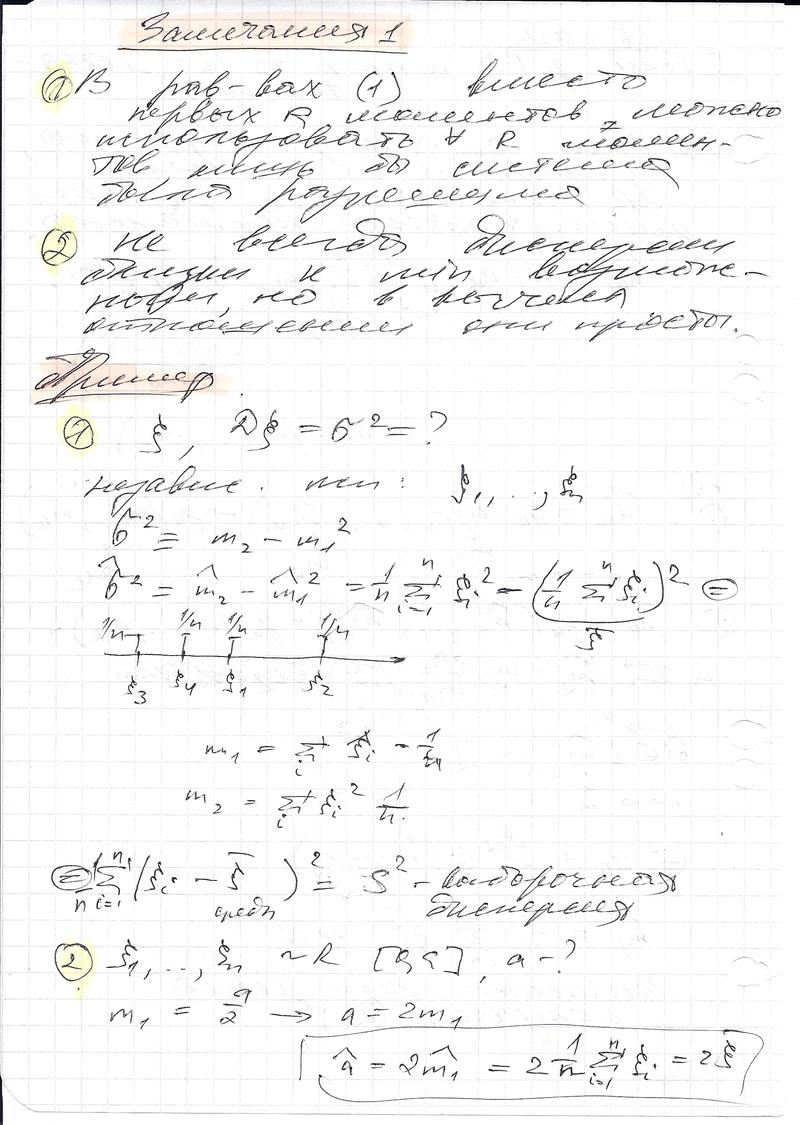 Замечания 1
① В рав-вах (1) вместо
первых R моментов, можно
использовать ∀ R момен-
тов, лишь бы система
была разрешима
② Не всегда дисперсии
близки к min возмож-
ным, но в вычисл.
отношении они просты.
Пример
① ξ, Dξ = σ² = ?
независ. : ξ₁, .., ξₙ
σ² = m₂ - m₁²
σ̂² = m̂₂ - m̂₁² = 1/n Σᵢ₌₁ⁿ ξᵢ² - (1/n Σⁿ ξᵢ)² ⊜
ξ̄
1/n 1/n 1/n 1/n
ξ₃ ξ₄ ξ₁ ξ₂
m₁ = Σᵢ ξᵢ · 1/n
m₂ = Σᵢ ξᵢ² 1/n
⊜ 1/n Σᵢ₌₁ⁿ (ξᵢ - ξ̄)² = S² - выборочная
средн дисперсия
② ξ₁, .., ξₙ ~ R [0, a], a - ?
m₁ = a/2 → a = 2m₁
â = 2m̂₁ = 2 1/n Σᵢ₌₁ⁿ ξᵢ = 2ξ̄